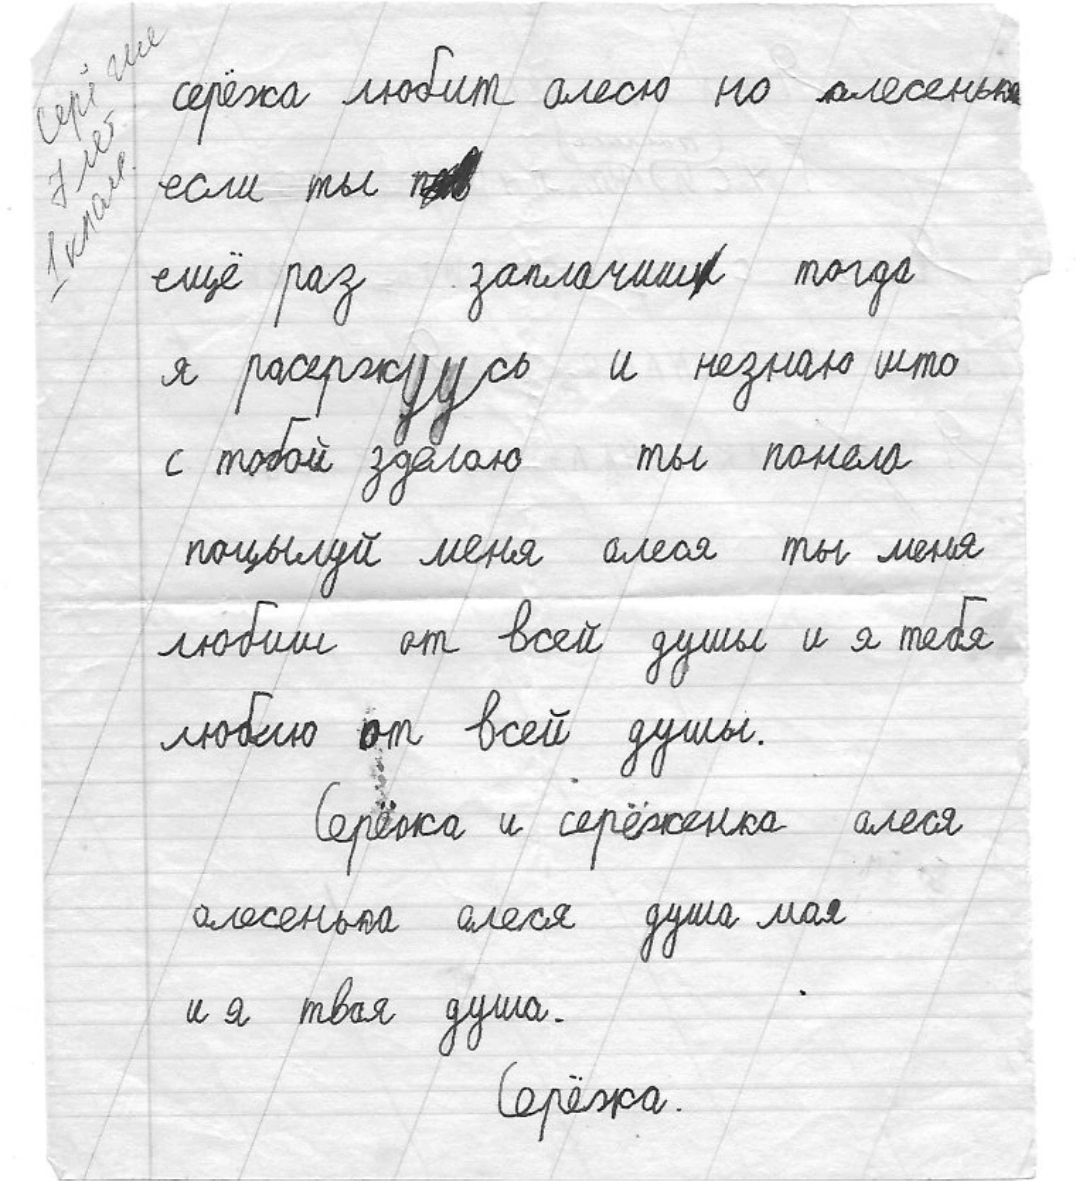 Серёже
7 лет
1 класс.
серёжа любит алесю но алесенька
если ты
ещё раз заплачиш тогда
я расержуусь и незнаю што
с тобой зделаю ты понела
поцылуй меня алеся ты меня
любиш от всей душы и я тебя
люблю от всей душы.
Серёжка и серёженка алеся
алесенька алеся душа мая
и я твая душа.
Серёжа.